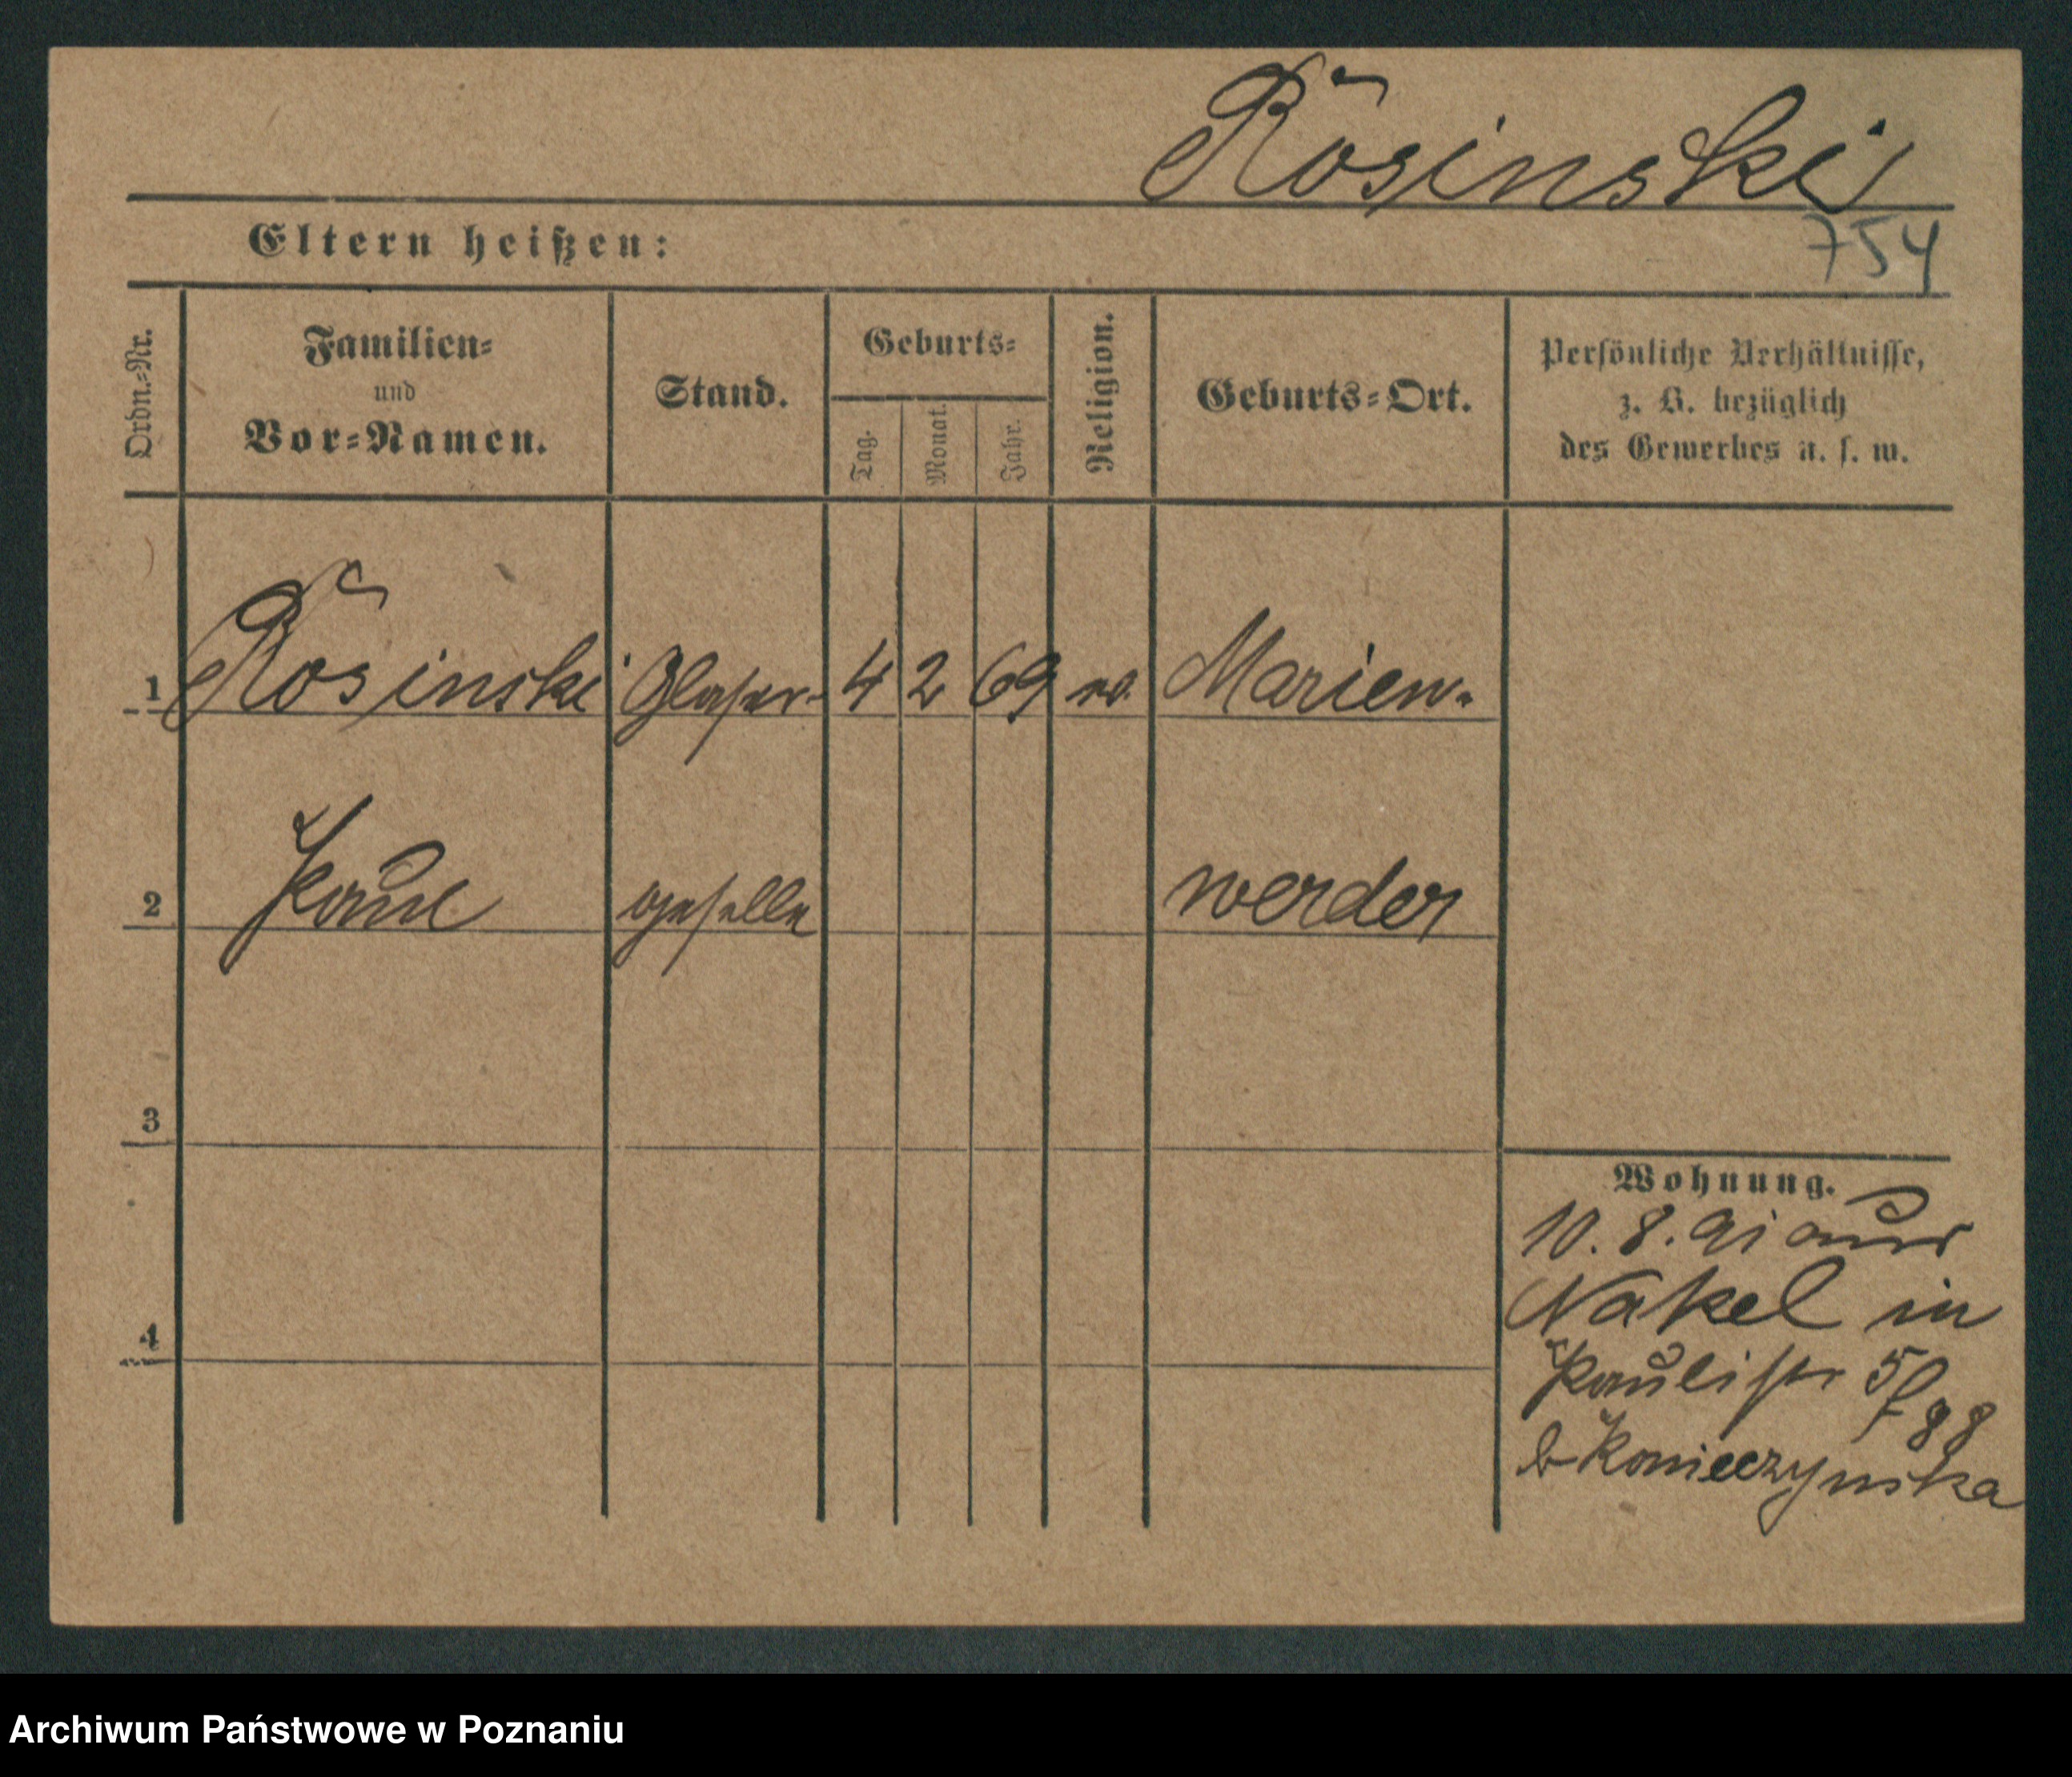 Rösinski
754
Eltern heißen:
Ordn.-Nr.
Familien-
und
Vor-Namen.
Stand.
Geburts-
Tag.
Monat.
Jahr.
Religion.
Geburts-Ort.
Persönliche Verhältnisse,
z. B. bezüglich
des Gewerbes u. s. w.
1 Rösinski Glaser- 4 2 69 Marien-
2 Paul geselle werder
3
4
Wohnung.
10. 8. 91 aus
Nakel in
Paulistr 5
b Konieczynska
Archiwum Państwowe w Poznaniu